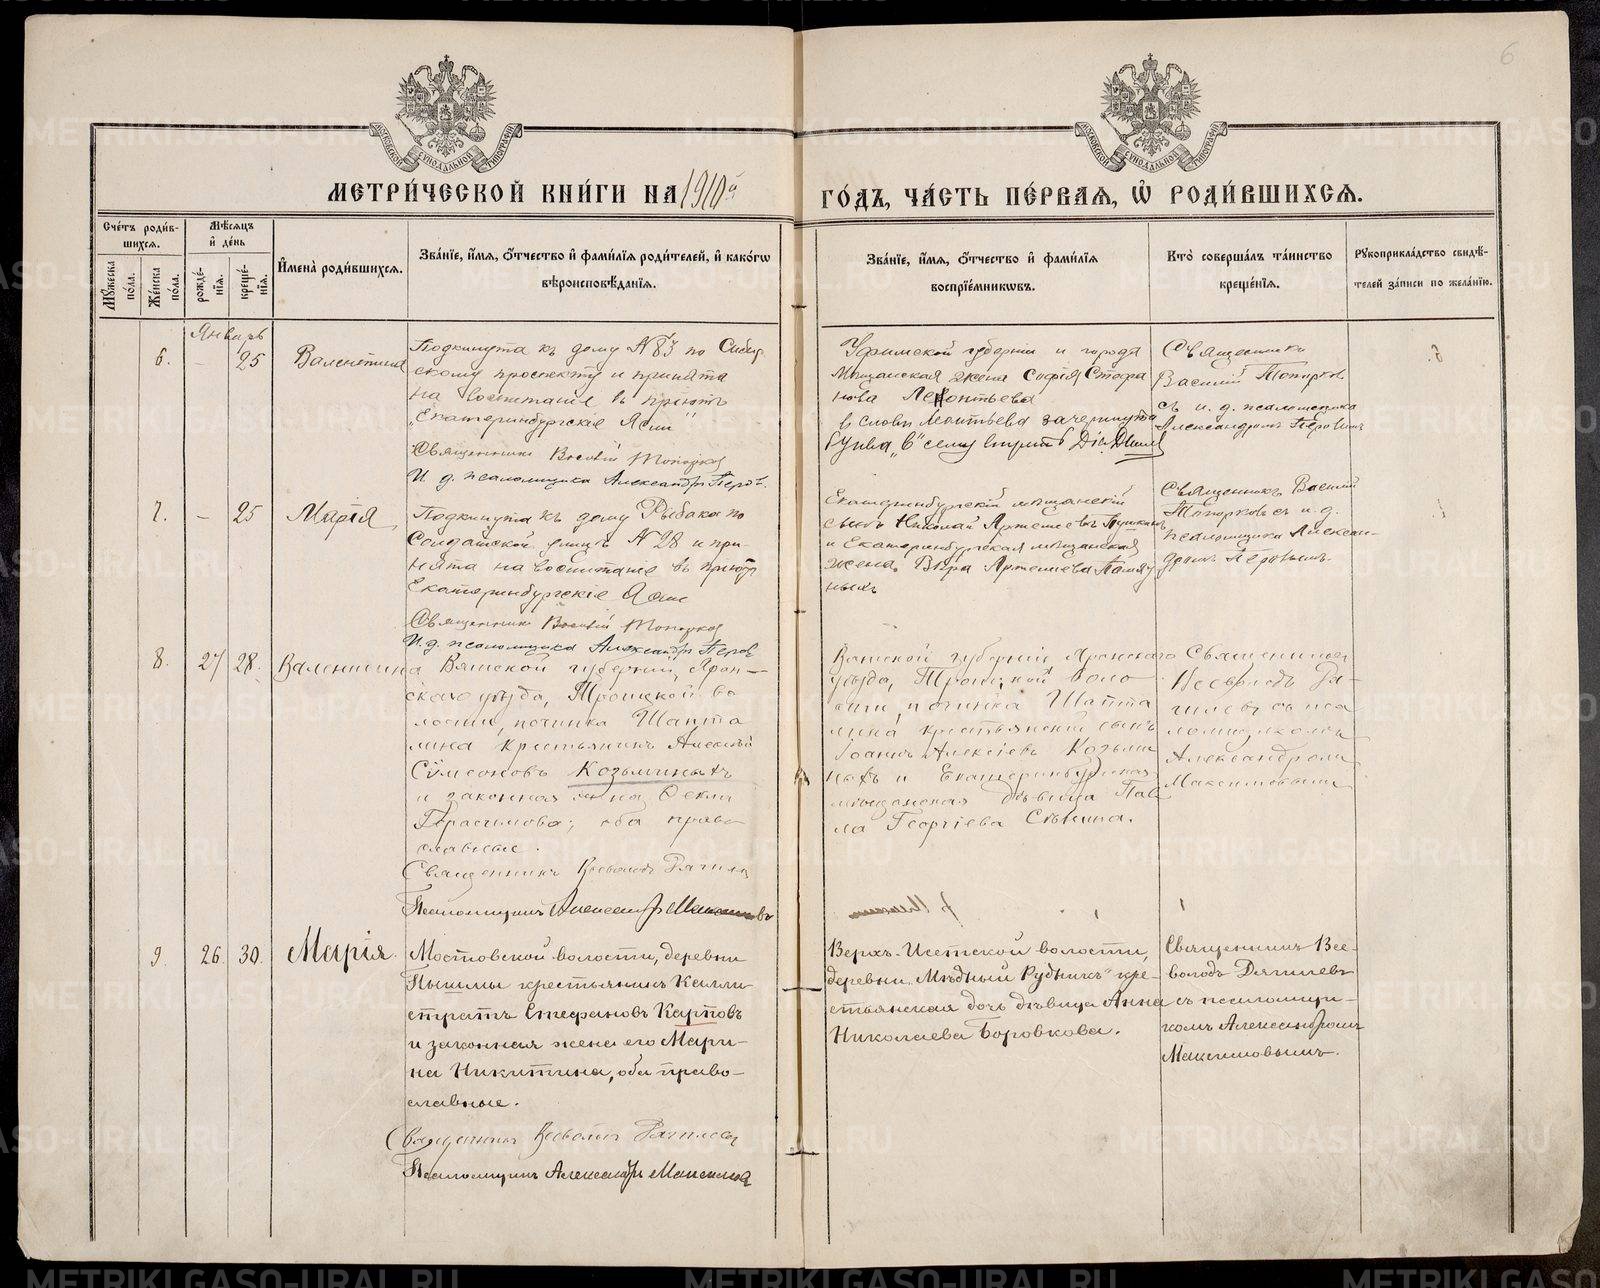 6
МОСКОВСКОЙ СѴНОДАЛЬНОЙ ТИПОГРАФІИ
МОСКОВСКОЙ СѴНОДАЛЬНОЙ ТИПОГРАФІИ
МЕТРИ́ЧЕСКОЙ КНИ́ГИ НА 1910й
ГО́ДЪ, ЧА́СТЬ ПЕ́РВАЯ, Ѡ҆ РОДИ́ВШИХСЯ.
Сче́тъ роди́в-
шихся.
Мꙋжеска по́ла.
Же́нска по́ла.
Мѣ́сяцъ
и҆ де́нь
рожде́-
нїя.
креще́-
нїя.
И҆мена̀ роди́вшихся.
Зва́нїе, и҆́мя, ѻ҆́тчество и҆ фами́лїя роди́телей, и҆ како́гѡ
вѣроисповѣ́данїя.
Зва́нїе, и҆́мя, ѻ҆́тчество и҆ фами́лїя
воспрїе́мникѡвъ.
Кто̀ соверша́лъ та́инство
креще́нїя.
Рꙋкоприкла́дство свидѣ́-
телей за́писи по жела́нїю.
Январь
6. — 25 Валентина
Подкинута къ дому № 83 по Сибир-
скому проспекту и принята
на воспитаніе въ пріютъ
„Екатеринбургскіе Ясли"
Священникъ Василій Топорков
И. д. псаломщика Александръ Перов.
Уфимской губерніи и города
Мѣщанская жена Софія Стефа
нова Леонтьева
в словѣ Леонтьева зачеркнута
буква „в"
Священникъ
Василій Топорков
съ и. д. псаломщика
Александромъ Перовымъ
7. — 25 Марія
Подкинута къ дому Рыбака по
Солдатской улицѣ № 28 и при-
нята на воспитаніе въ пріютъ
Екатеринбургскіе Ясли
Священникъ Василій Топорков
И. д. псаломщика Александръ Перов
Екатеринбургскій мѣщанскій
сынъ Николай Артемьевъ
и Екатеринбургская мѣщанская
жена Вѣра Артемьева
ныхъ
Священникъ Василій
Топорковъ съ и. д.
псаломщика Алексан-
дромъ Перовымъ.
8. 27 28. Валентина
Вятской губерній, Яран-
скаго уѣзда, Троицкой во
лости, починка Шапта
лина крестьянинъ Алексѣй
Сѵмеоновъ Козьминыхъ
и законная жена Ѳекла
Герасимова; оба право
славные.
Священникъ Всеволодъ Дягилев
Псаломщикъ Александр Максимовъ
Вятской губерній Яранскаго
уѣзда, Троицкой воло
сти, починка Шапта
лина крестьянскій сынъ
Іоаннъ Алексіевъ Козьми
ныхъ и Екатеринбургская
мѣщанская дѣвица Пав
ла Георгіева Сѣнина.
Священникъ
Всеволодъ Дя-
гилевъ съ пса
ломщикомъ
Александромъ
Максимовымъ
9. 26. 30. Марія.
Мостовской волости, деревни
Пышмы крестьянинъ Калли-
стратъ Стефановъ Карповъ
и законная жена его Мари-
на Никитина, оба право-
славные.
Священникъ Всеволодъ Дягилевъ
Псаломщикъ Александръ Максимов
Верхъ-Исетской волости,
деревни „Мѣдный Рудникъ" кре-
стьянская дочь дѣвица Анна
Николаева Боровкова.
Священникъ Все-
володъ Дягилевъ
съ псаломщи-
комъ Александромъ
Максимовымъ.
METRIKI.GASO-URAL.RU